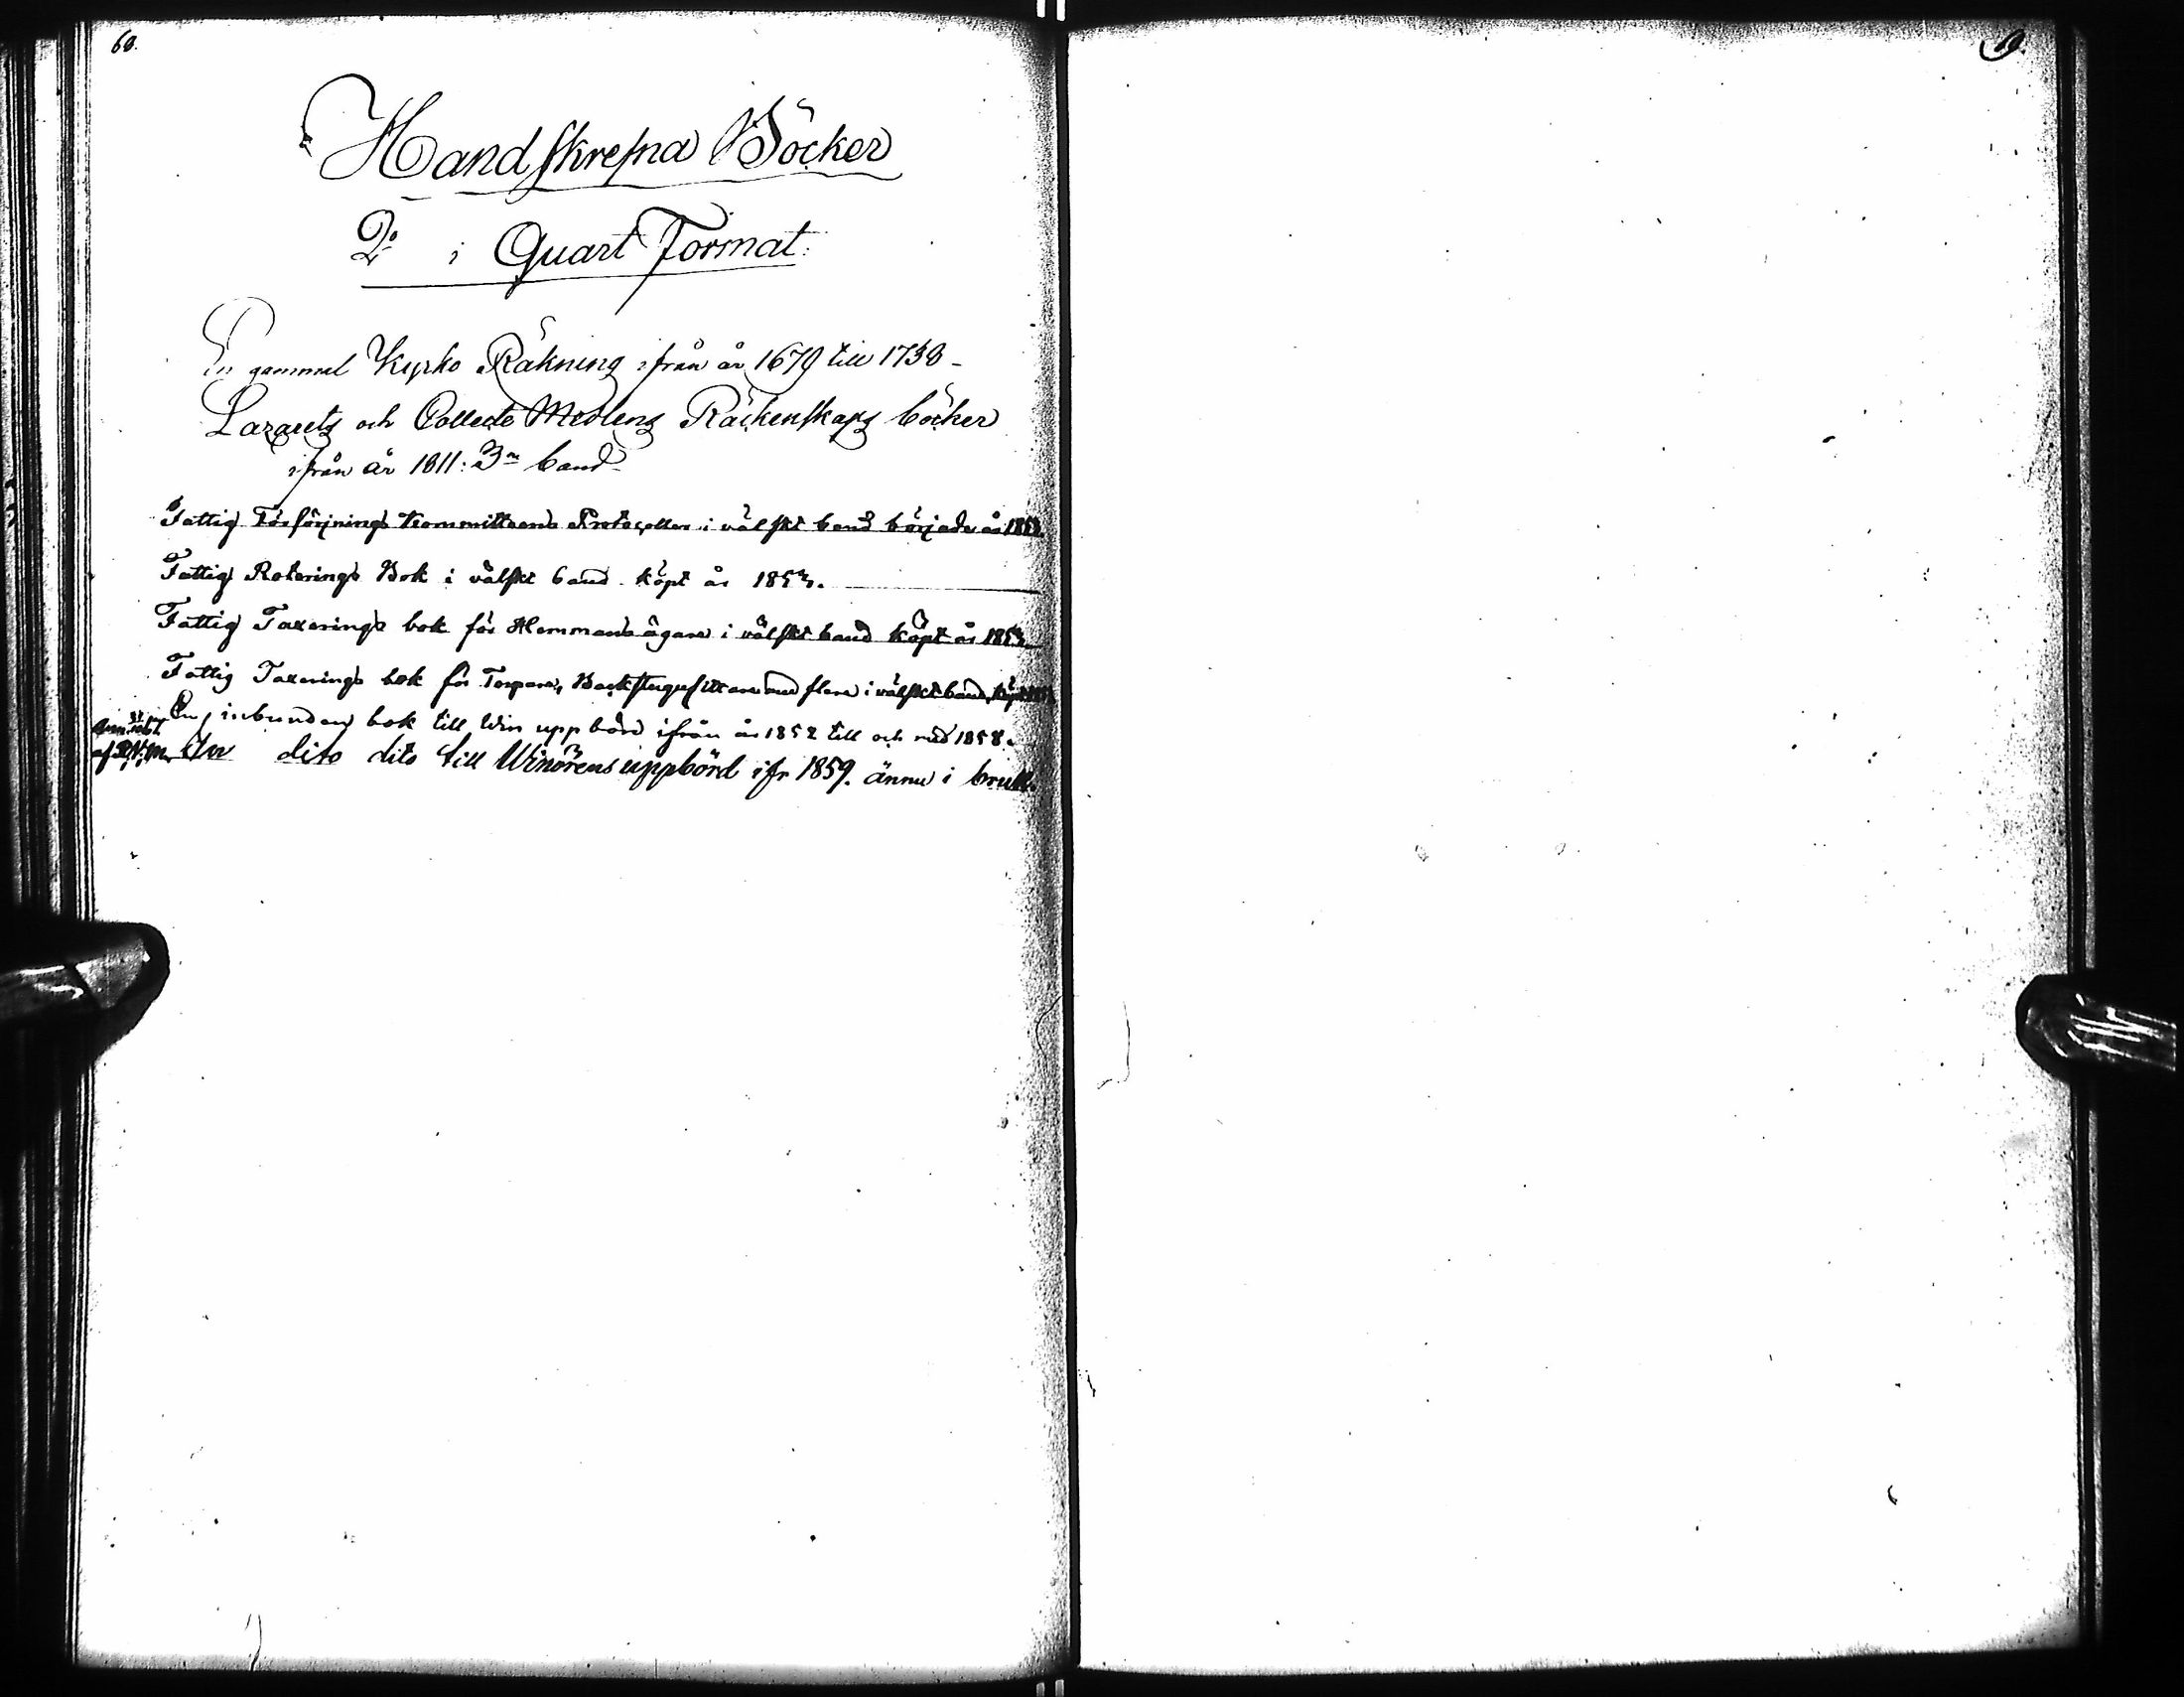 68.
Handskrefna Böcker
2º i Quart Format:
En gammal Kyrko Räkning ifrån år 1679 till 1738 -
Lazarets och Collecte Medlens Räckenskaps böcker
ifrån år 1811: 3ne band
Fattig Försörjnings Kommitteens Protocoller i välskt band började år 1853.
Fattig Roterings Bok i välskt band köpt år 1853.
Fattig Taxerings bok för Hemmans ägare i välskt band köpt år 1853
Fattig Taxerings bok för Torpare, Backstugusittare med flere i välskt band, köpt
En inbunden bok till Win uppbörd ifrån år 1852 till och med 1858.
af R.V.M. En dito dito till Winörens uppbörd ifr 1859. ännu i bruk.